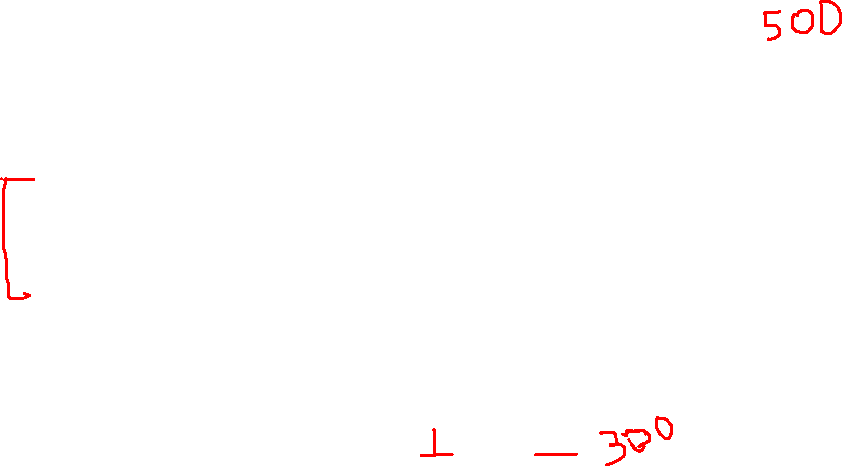 500
[
⊥ — 300